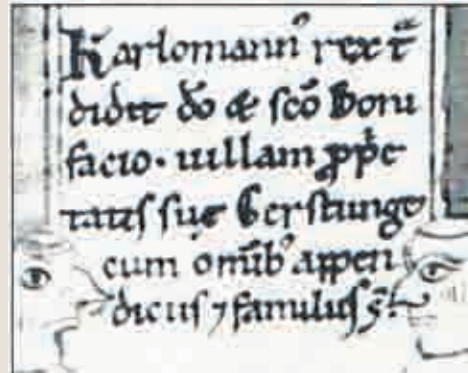 Karlomann᾽ rex t̄
didit dō & scō Boni
facio. uillam ꝓp̄e
tatis suę Gerstunge
cum omib᾽ appen
diciis ⁊ famuliis